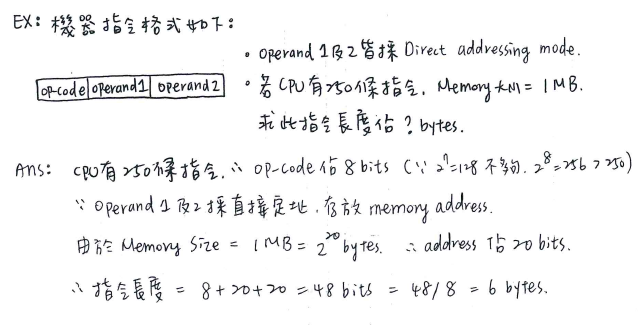 EX: 機器指令格式如下:
op-code operand1 operand2
• operand 1及2皆採 Direct addressing mode.
• 若CPU有250條指令, Memory大小 = 1MB.
求此指令長度佔?bytes.
Ans: CPU有250條指令, ∴ op-code佔8bits (∵ 2^7=128 不夠, 2^8=256 > 250)
∵ operand 1及2採直接定址, 存放 memory address.
由於 Memory Size = 1MB = 2^20 bytes. ∴ address 佔20 bits.
∴ 指令長度 = 8+20+20 = 48 bits = 48/8 = 6 bytes.